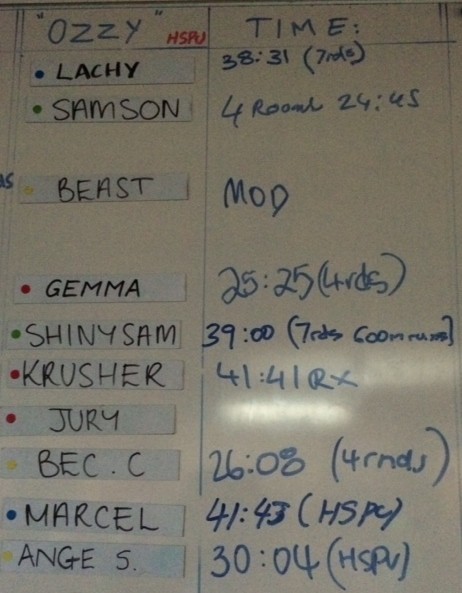 "OZZY" HSPU TIME:
LACHY 38:31 (7rds)
SAMSON 4 Round 24:45
AS BEAST MOD
GEMMA 25:25 (4rds)
SHINYSAM 39:00 (7rds 600m runs)
KRUSHER 41:41 RX
JURY
BEC. C 26:08 (4rnds)
MARCEL 41:43 (HSPU)
ANGE S. 30:04 (HSPU)